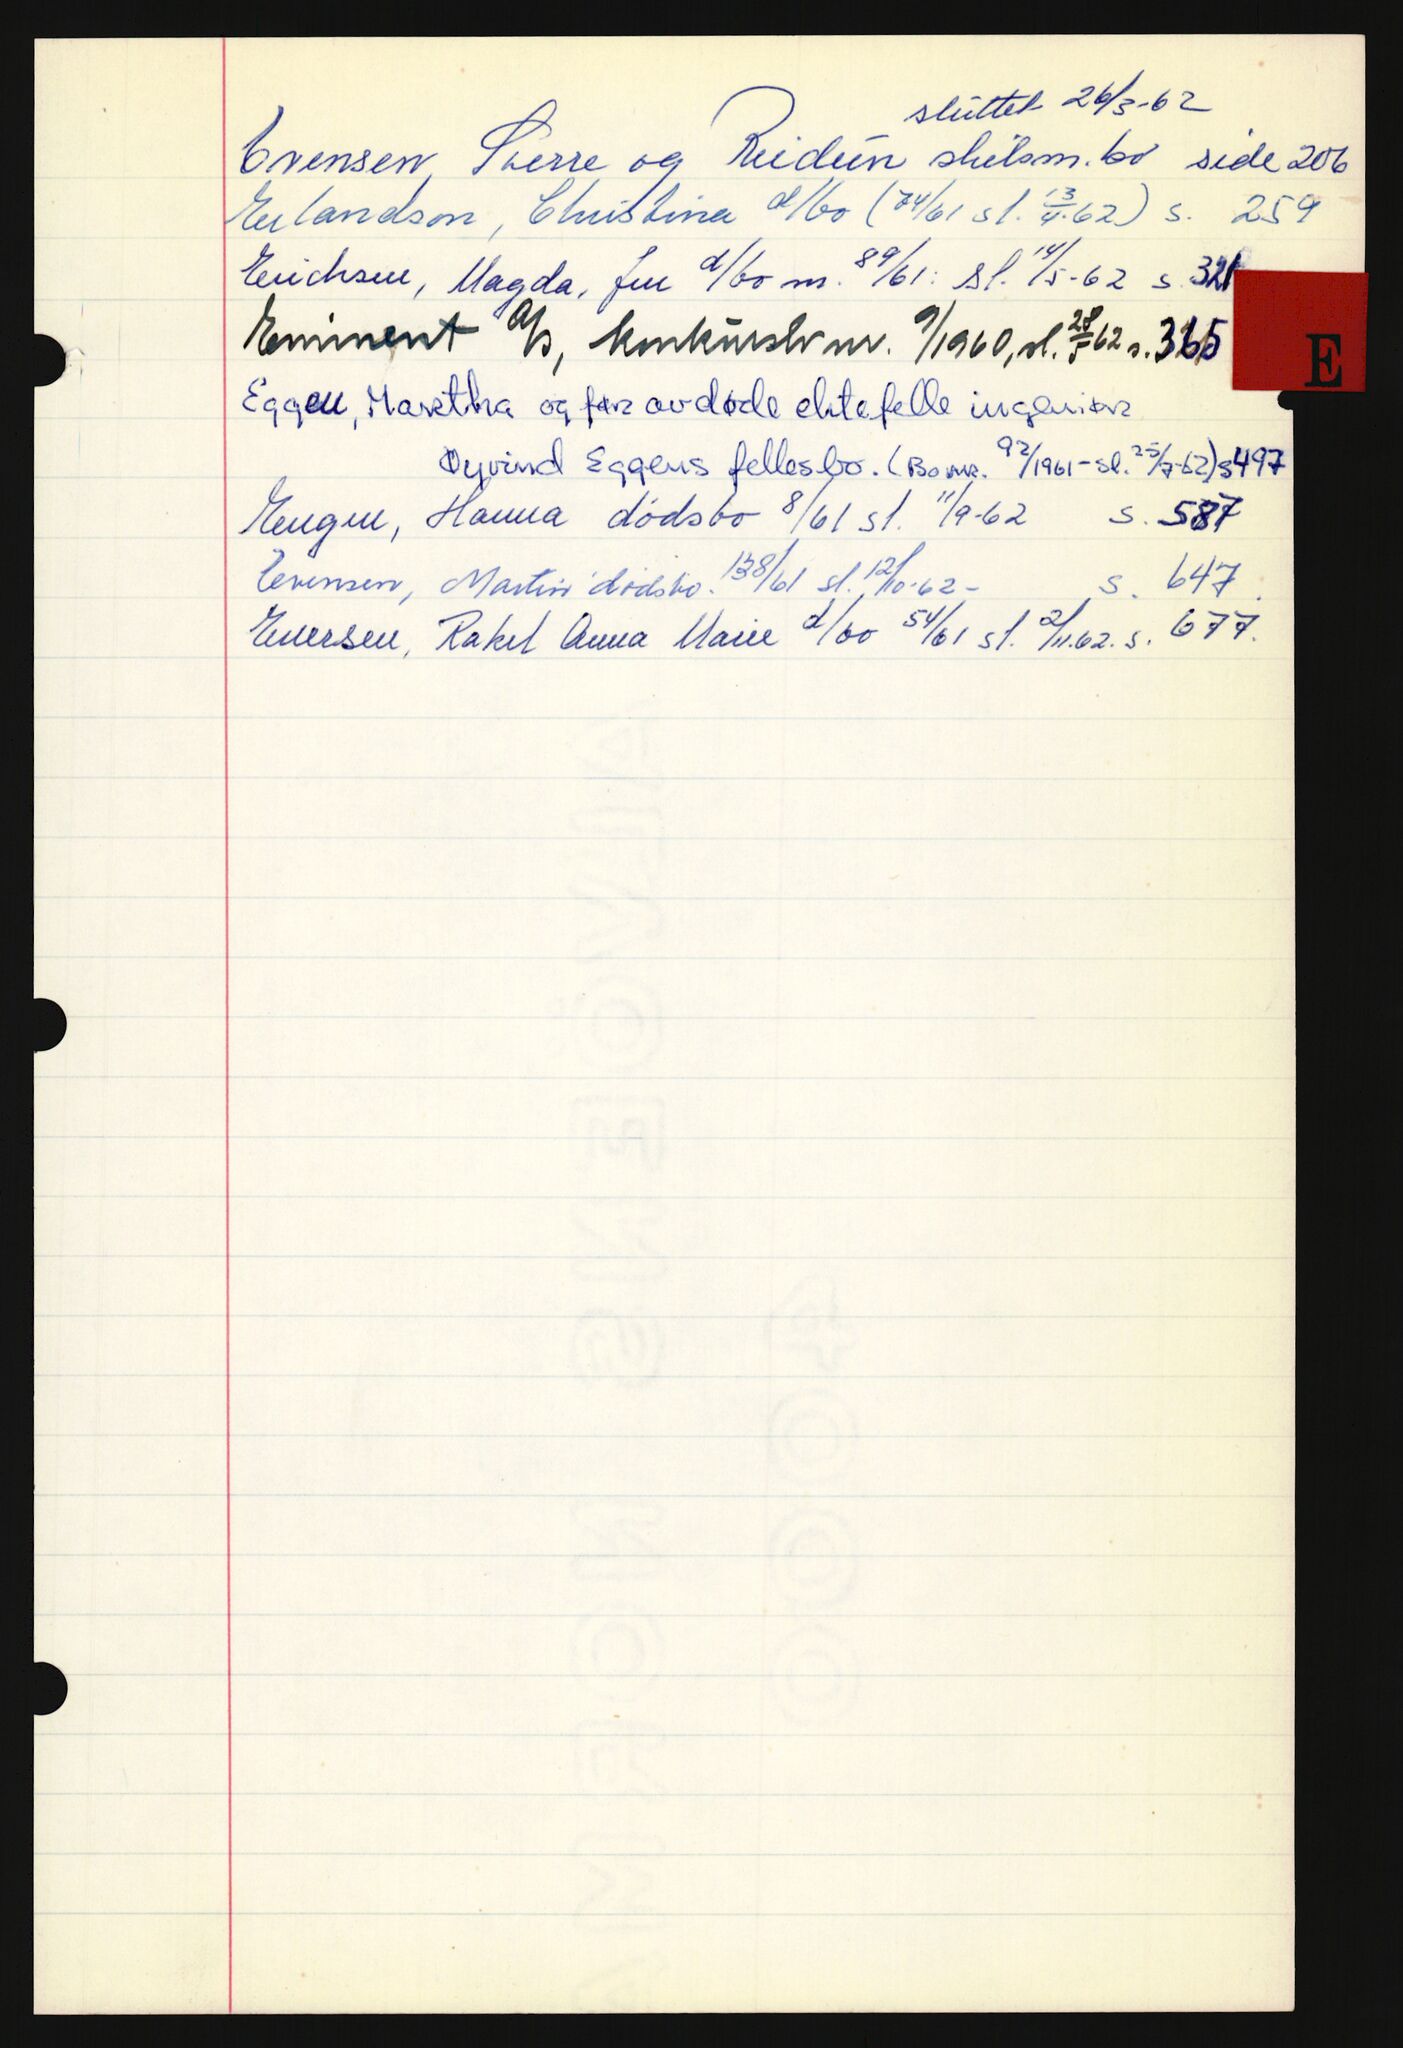 sluttet 26/3-62
Evensen, Sverre og Reidun skilsm. bo side 206
Erlandson, Christina d/bo (74/61 sl. 13/4-62) s. 259
Erichsen, Magda, fru d/bo nr. 89/61: sl. 14/5-62 s. 321
Eminent A/S, konkursbo nr. 9/1960, sl. 28/5 62 s. 365
E
Eggen, Martha og før avdøde ektefelle ingeniør
Øyvind Eggens fellesbo. (Bo nr. 92/1961 - sl. 25/7-62) s 497
Engen, Hanna dødsbo 8/61 sl. 11/9-62 s. 587
Evensen, Martin dødsbo. 138/61 sl. 12/10-62 - s. 647.
Evensen, Rakel Anna Marie d/bo 54/61 sl. 2/11.62. s. 677.